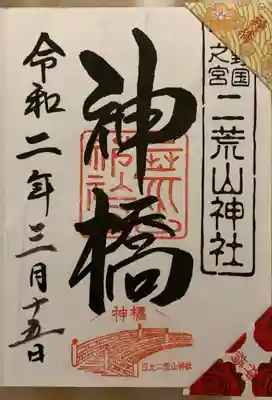 野国
之宮
二荒山神社
神橋
令和二年三月十五日
神橋
日光二荒山神社